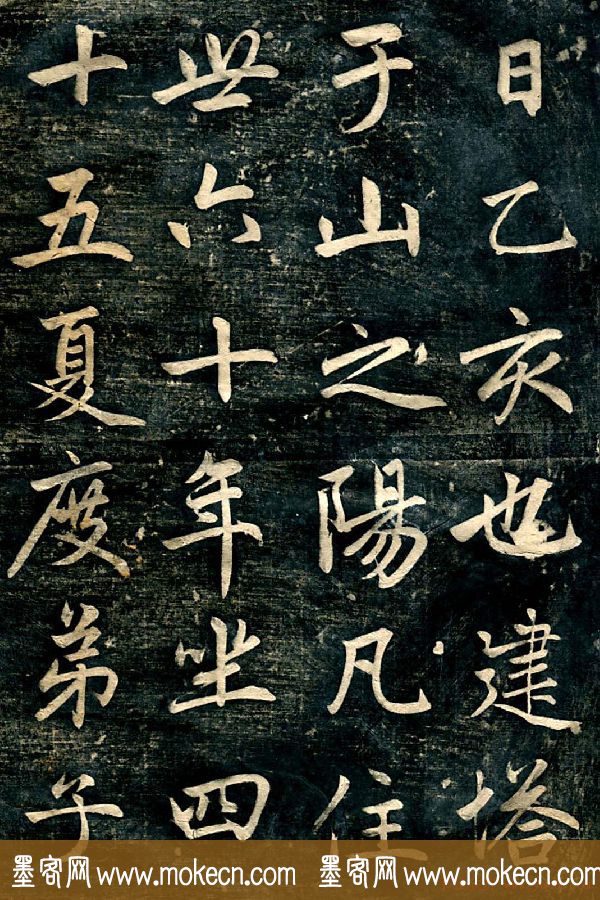 日乙亥也建塔
于山之陽凡住
世六十年坐四
十五夏度弟子
墨客网 www.mokecn.com 墨客网 www.mokecn.com